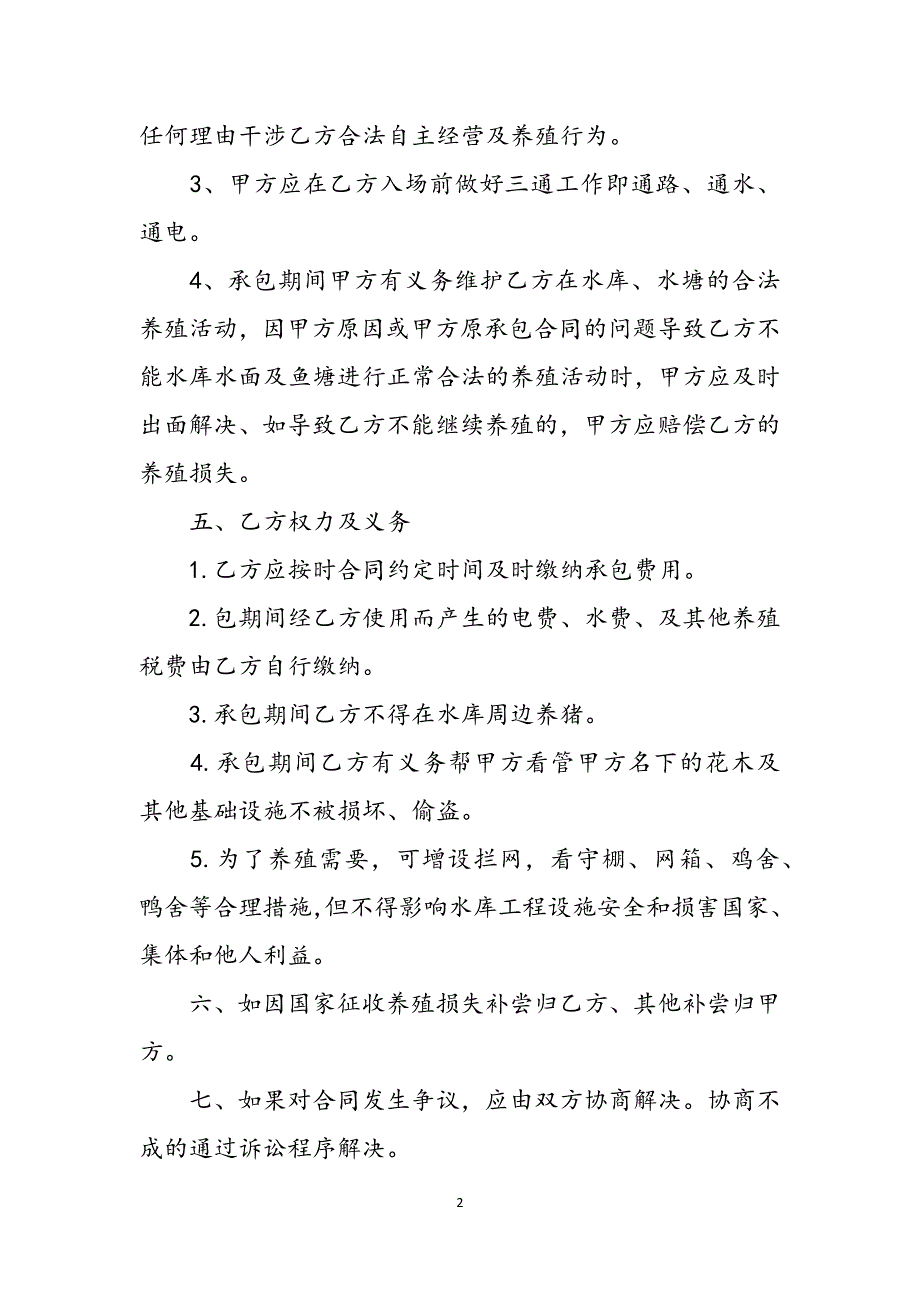 任何理由干涉乙方合法自主经营及养殖行为。
3、甲方应在乙方入场前做好三通工作即通路、通水、
通电。
4、承包期间甲方有义务维护乙方在水库、水塘的合法
养殖活动，因甲方原因或甲方原承包合同的问题导致乙方不
能水库水面及鱼塘进行正常合法的养殖活动时，甲方应及时
出面解决、如导致乙方不能继续养殖的，甲方应赔偿乙方的
养殖损失。
五、乙方权力及义务
1.乙方应按时合同约定时间及时缴纳承包费用。
2.包期间经乙方使用而产生的电费、水费、及其他养殖
税费由乙方自行缴纳。
3.承包期间乙方不得在水库周边养猪。
4.承包期间乙方有义务帮甲方看管甲方名下的花木及
其他基础设施不被损坏、偷盗。
5.为了养殖需要，可增设拦网，看守棚、网箱、鸡舍、
鸭舍等合理措施,但不得影响水库工程设施安全和损害国家、
集体和他人利益。
六、如因国家征收养殖损失补尝归乙方、其他补尝归甲
方。
七、如果对合同发生争议，应由双方协商解决。协商不
成的通过诉讼程序解决。
2